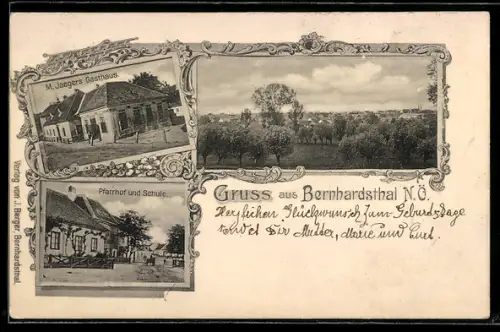 M. Jaegers Gasthaus.
Pfarrhof und Schule.
Verlag von J. Berger, Bernhardsthal.
Gruss aus Bernhardsthal N.Ö.
Herzlichen Glückwunsch zum Geburtsdage
sendet Dir Mutter, Marie und